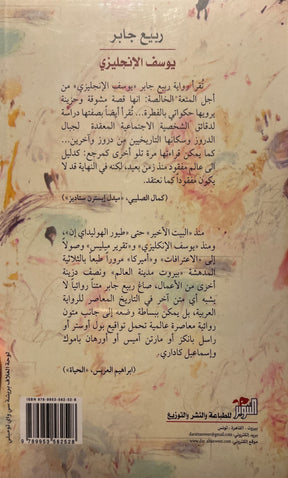 ربيع جابر
يوسف الإنجليزي
تُقرأ رواية ربيع جابر «يوسف الإنجليزي» من
أجل المتعة الخالصة: انها قصة مشوقة وحزينة
يرويها حكواتي بالفطرة... تُقرأ أيضاً بصفتها دراسة
لدقائق الشخصية الاجتماعية المعقدة لجبال
الدروز وسكانها التاريخيين من دروز وآخرين...
كما يمكن قراءتها مرة تلو أخرى كمرجع: كدليل
الى عالم مفقود منذ زمن بعيد، لكنه في النهاية قد لا
يكون مفقوداً كما نعتقد.
(كمال الصليبي، «ميدل إيسترن ستاديز»)
منذ «البيت الأخير» حتى «طيور الهوليداي إن»،
ومنذ «يوسف الإنكليزي» و«تقرير ميليس» وصولاً
إلى «الاعترافات» و«أميركا»، مروراً طبعاً بالثلاثية
المدهشة «بيروت مدينة العالم» ونصف دزينة
أخرى من الأعمال، صاغ ربيع جابر متناً روائياً لا
يشبه أي متن آخر في التاريخ المعاصر للرواية
العربية، بل يمكن ببساطة وضعه إلى جانب متون
روائية معاصرة عالمية تحمل تواقيع بول أوستر أو
راسل بانكز أو مارتن أميس أو أورهان باموك
وإسماعيل كاداري.
(ابراهيم العريس، «الحياة»)
لوحة الغلاف بريشة سي واي تومبلي
9 789953 582528
التنوير
للطباعة والنشر والتوزيع
بيروت - القاهرة - تونس